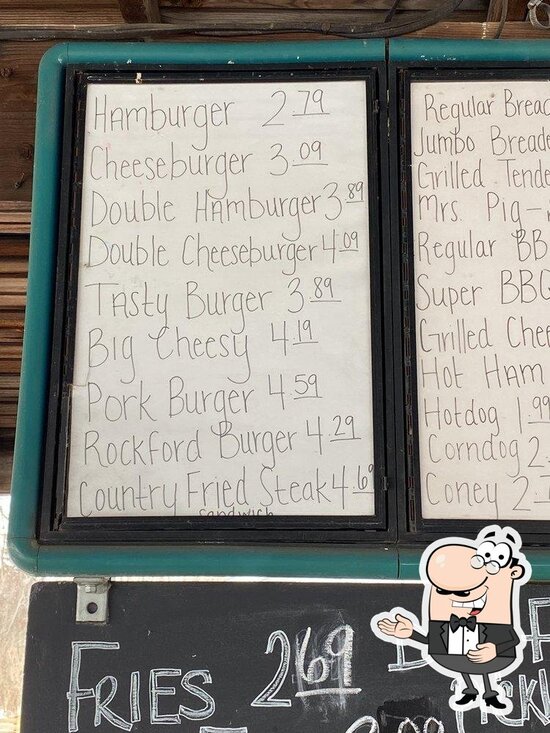 Hamburger 2.79
Cheeseburger 3.09
Double Hamburger 3.89
Double Cheeseburger 4.09
Tasty Burger 3.89
Big Cheesy 4.19
Pork Burger 4.59
Rockford Burger 4.29
Country Fried Steak 4.69
sandwich
Regular Bread
Jumbo Breade
Grilled Tende
Mrs Pig-
Regular BB
Super BBQ
Grilled Chee
Hot Ham
Hotdog 1.99
Corndog 2.
Coney 2.
FRIES 2.69